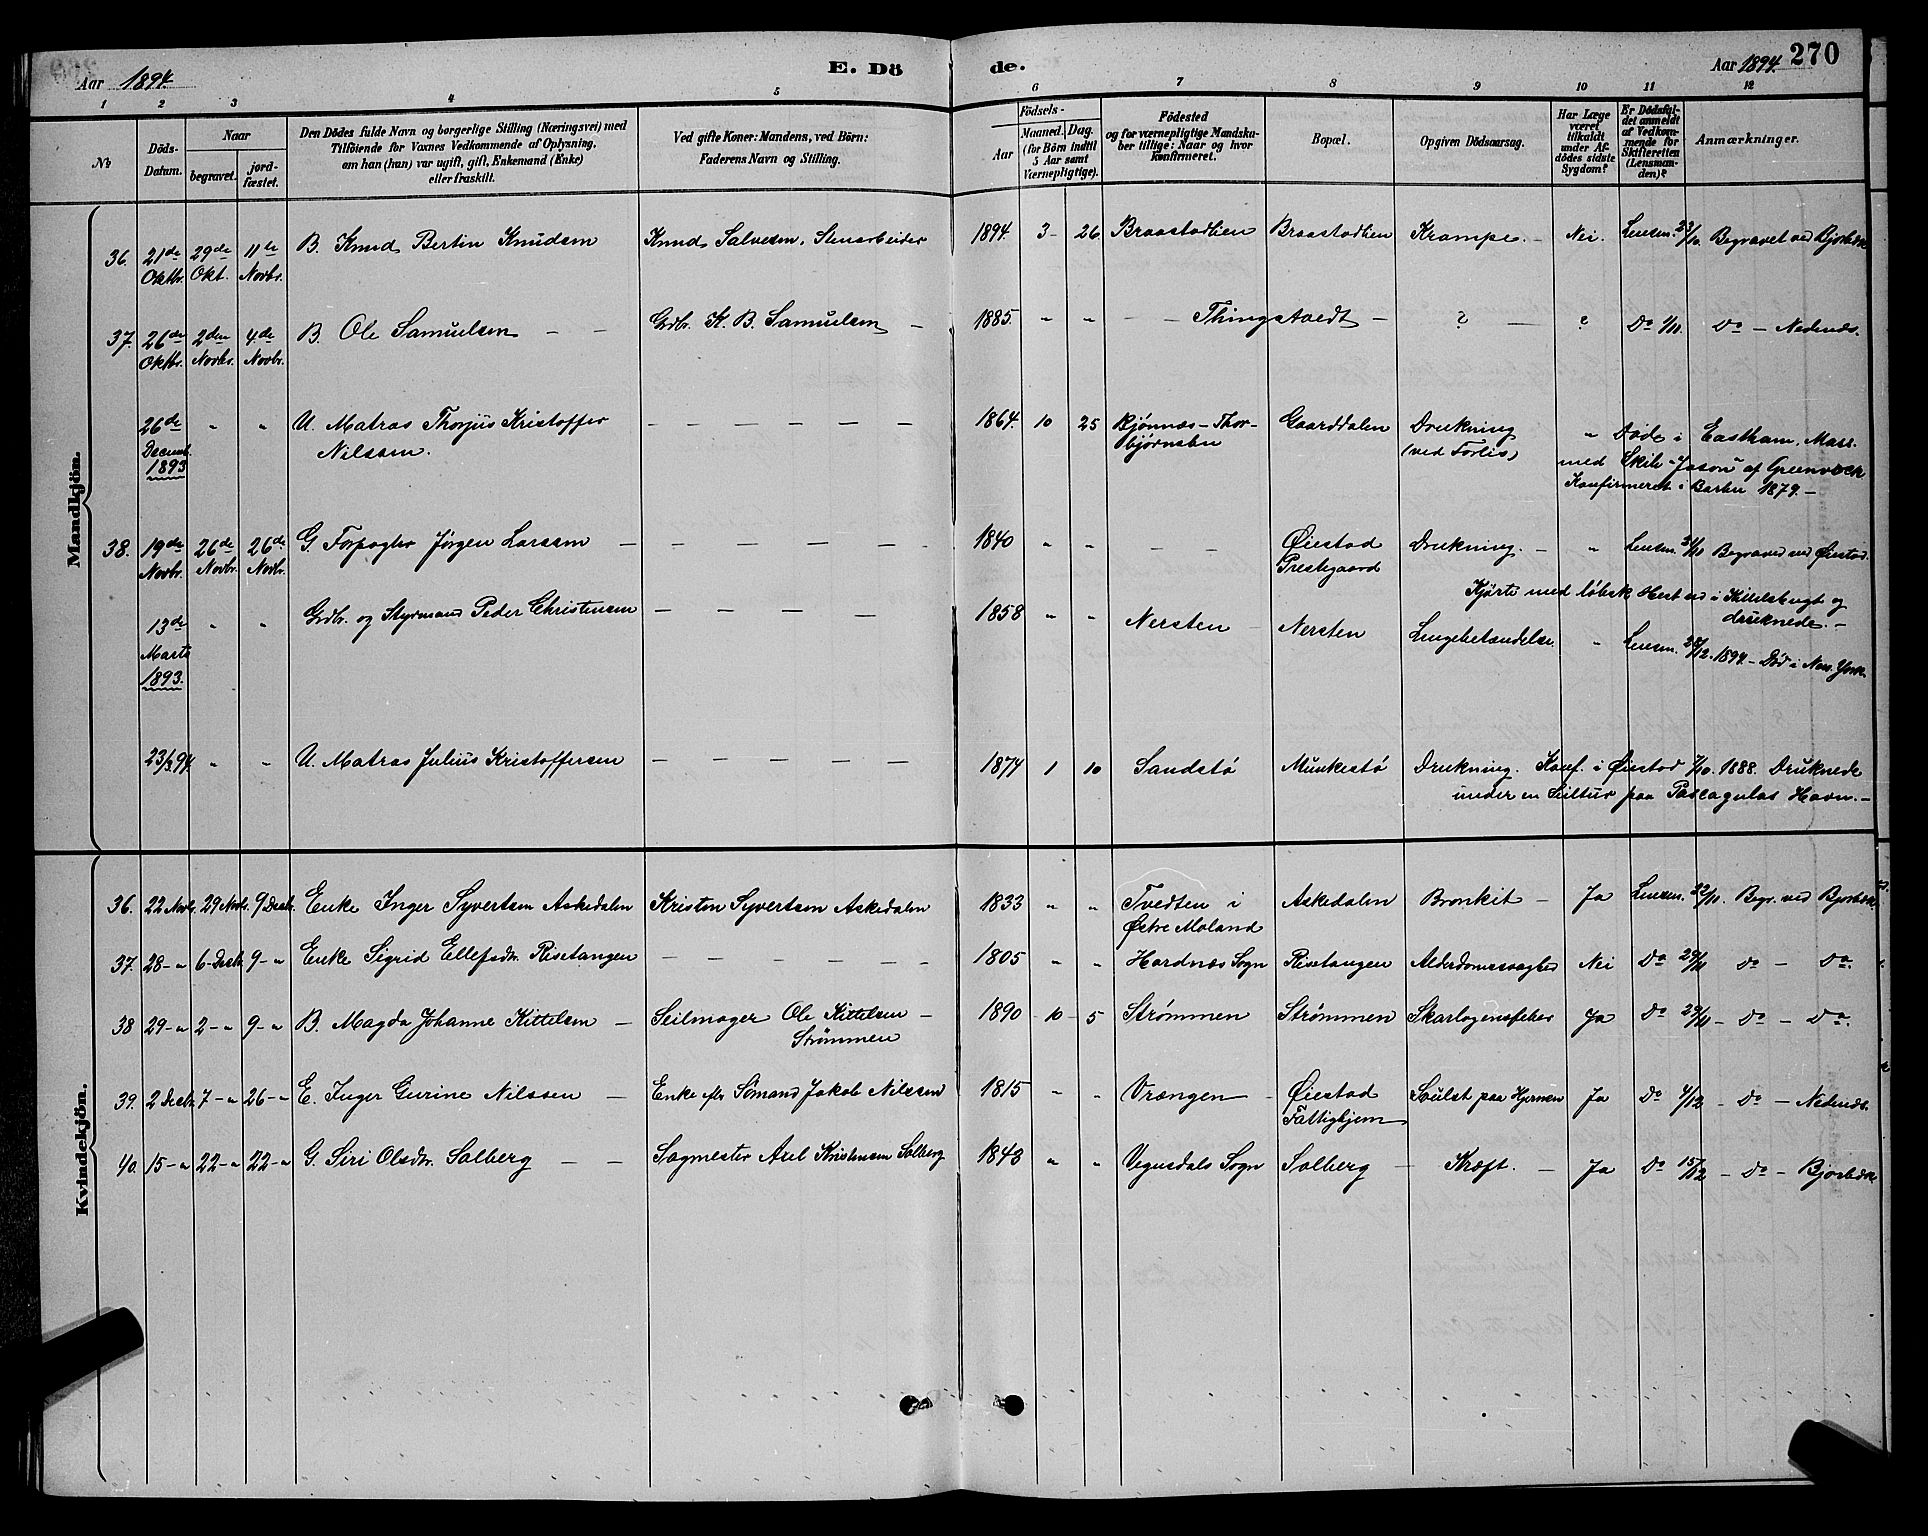 Aar 1894.
E. Dö
de.
Aar 1894.
270
1 2 3 4 5 6 7 8 9 10 11 12
No
Döds-
Datum.
Naar
begravet.
jord-
fæstet.
Den Dödes fulde Navn og borgerlige Stilling (Næringsvei) med
Tilföiende for Voxnes Vedkommende af Oplysning,
om han (hun) var ugift, gift, Enkemand (Enke)
eller fraskilt.
Ved gifte Koner: Mandens, ved Börn:
Faderens Navn og Stilling.
Födsels-
Aar
Maaned. Dag.
(for Börn indtil
5 Aar samt
Værnepligtige).
Födested
og for værnepligtige Mandska-
ber tillige: Naar og hvor
konfirmeret.
Bopæl.
Opgiven Dödsaarsag.
Har Læge
været
tilkaldt
under Af-
dödes sidste
Sygdom?
Er Dödsfal-
det anmeldt
af Vedkom-
mende for
Skifteretten
(Lensman-
den)?
Anmærkninger.
Mandkjön.
36. 21de Oktbr. 29de Okt. 11te Novbr. B. Knud Bertin Knudsen Knud Salvesen, Stenarbeider 1894 3 - 26 Braastadlien Braastadlien Krampe. - Nei. Lensm. 23/10. Begravet ved Bjorbæk
37. 26de Oktbr. 2den Novbr. 4de Novbr. B. Ole Samuelsen - - Grdbr. K. B. Samuelsen - 1885. " " - - Thingstvedt - ? - ? Do 1/11. Do - Nedenæs.
26de Decemb. 1893 " " U. Matros Thorjus Kristoffer - - - - - - 1864. 10 25 Bjønnæs - Thor- Gaarddalen Drukning " Døde i Eastham, Mass.
Nilssen. bjørnsbu (ved Forlis) med Skib "Jason" af Greenock
Konfirmeret i Barbu 1879. -
38. 19de Novbr. 26de Novbr. 26de Novbr. G. Forpagter Jørgen Larsen - - - - - - 1840 " " - - Øiestad Drukning. - " Lensm. Begraved ved Øiestad.
Prestegaard
Kjørte med løbsk Hest ud i og
druknede. -
13de Marts 1893. " " Grdbr. og Styrmand Peder Christensen - - - - - 1858 " " Nersten - Nersten Lungebetændelse. " Lensm. 28/12. 1894. - Død i New York.
23/3 94. " " U. Matros Julius Kristoffersen - - - - - - 1874 1 10 Sandstø Munkestø Drukning. Konf. i Øiestad 7/10. 1888. Druknede
under en Seiltur paa Pascagulas Havn. -
Kvindekjön.
36. 22 Novbr. 29 Novbr. 9 Decbr. Enke Inger Syvertsen Askedalen Kristen Syvertsen Askedalen 1833 " " Tvedten i Askedalen Bronkit - Ja Lensm. Begr. ved Bjorbæk.
Østre Moland
37. 28 - " 6 - Decbr. 9 - " Enke Sigrid Ellefsdtr. Risetangen - - - - - - - 1805 " " Hordnæs Sogn Risetangen Alderdomssvaghed Nei Do 29/11 Do - Do.
38 29 - " 2 - " 9 - " B. Magda Johanne Kittelsen - Seilmager Ole Kittelsen - 1890 - 10 - 5 Strømmen Strømmen Skarlagensfeber Ja Do 29/11 - Do - Do.
Strømmen
39. 2 Decbr. 7 - " 26 - " E. Inger Gurine Nilssen - Enke eftr Sömand Jakob Nilssen 1815 " " Vrængen - Øiestad Svulst paa Hjernen Ja Do 4/12 - Do - Nedenæs.
Fattighjem
40. 15 - " 22 - " 22 - " G. Siri Olsdtr. Solberg - - Sagmester Axel Kristensen Solberg 1843 " " Vegusdals Sogn Solberg - Kræft. - Ja Do 15/12 - Do - Bjorbæk